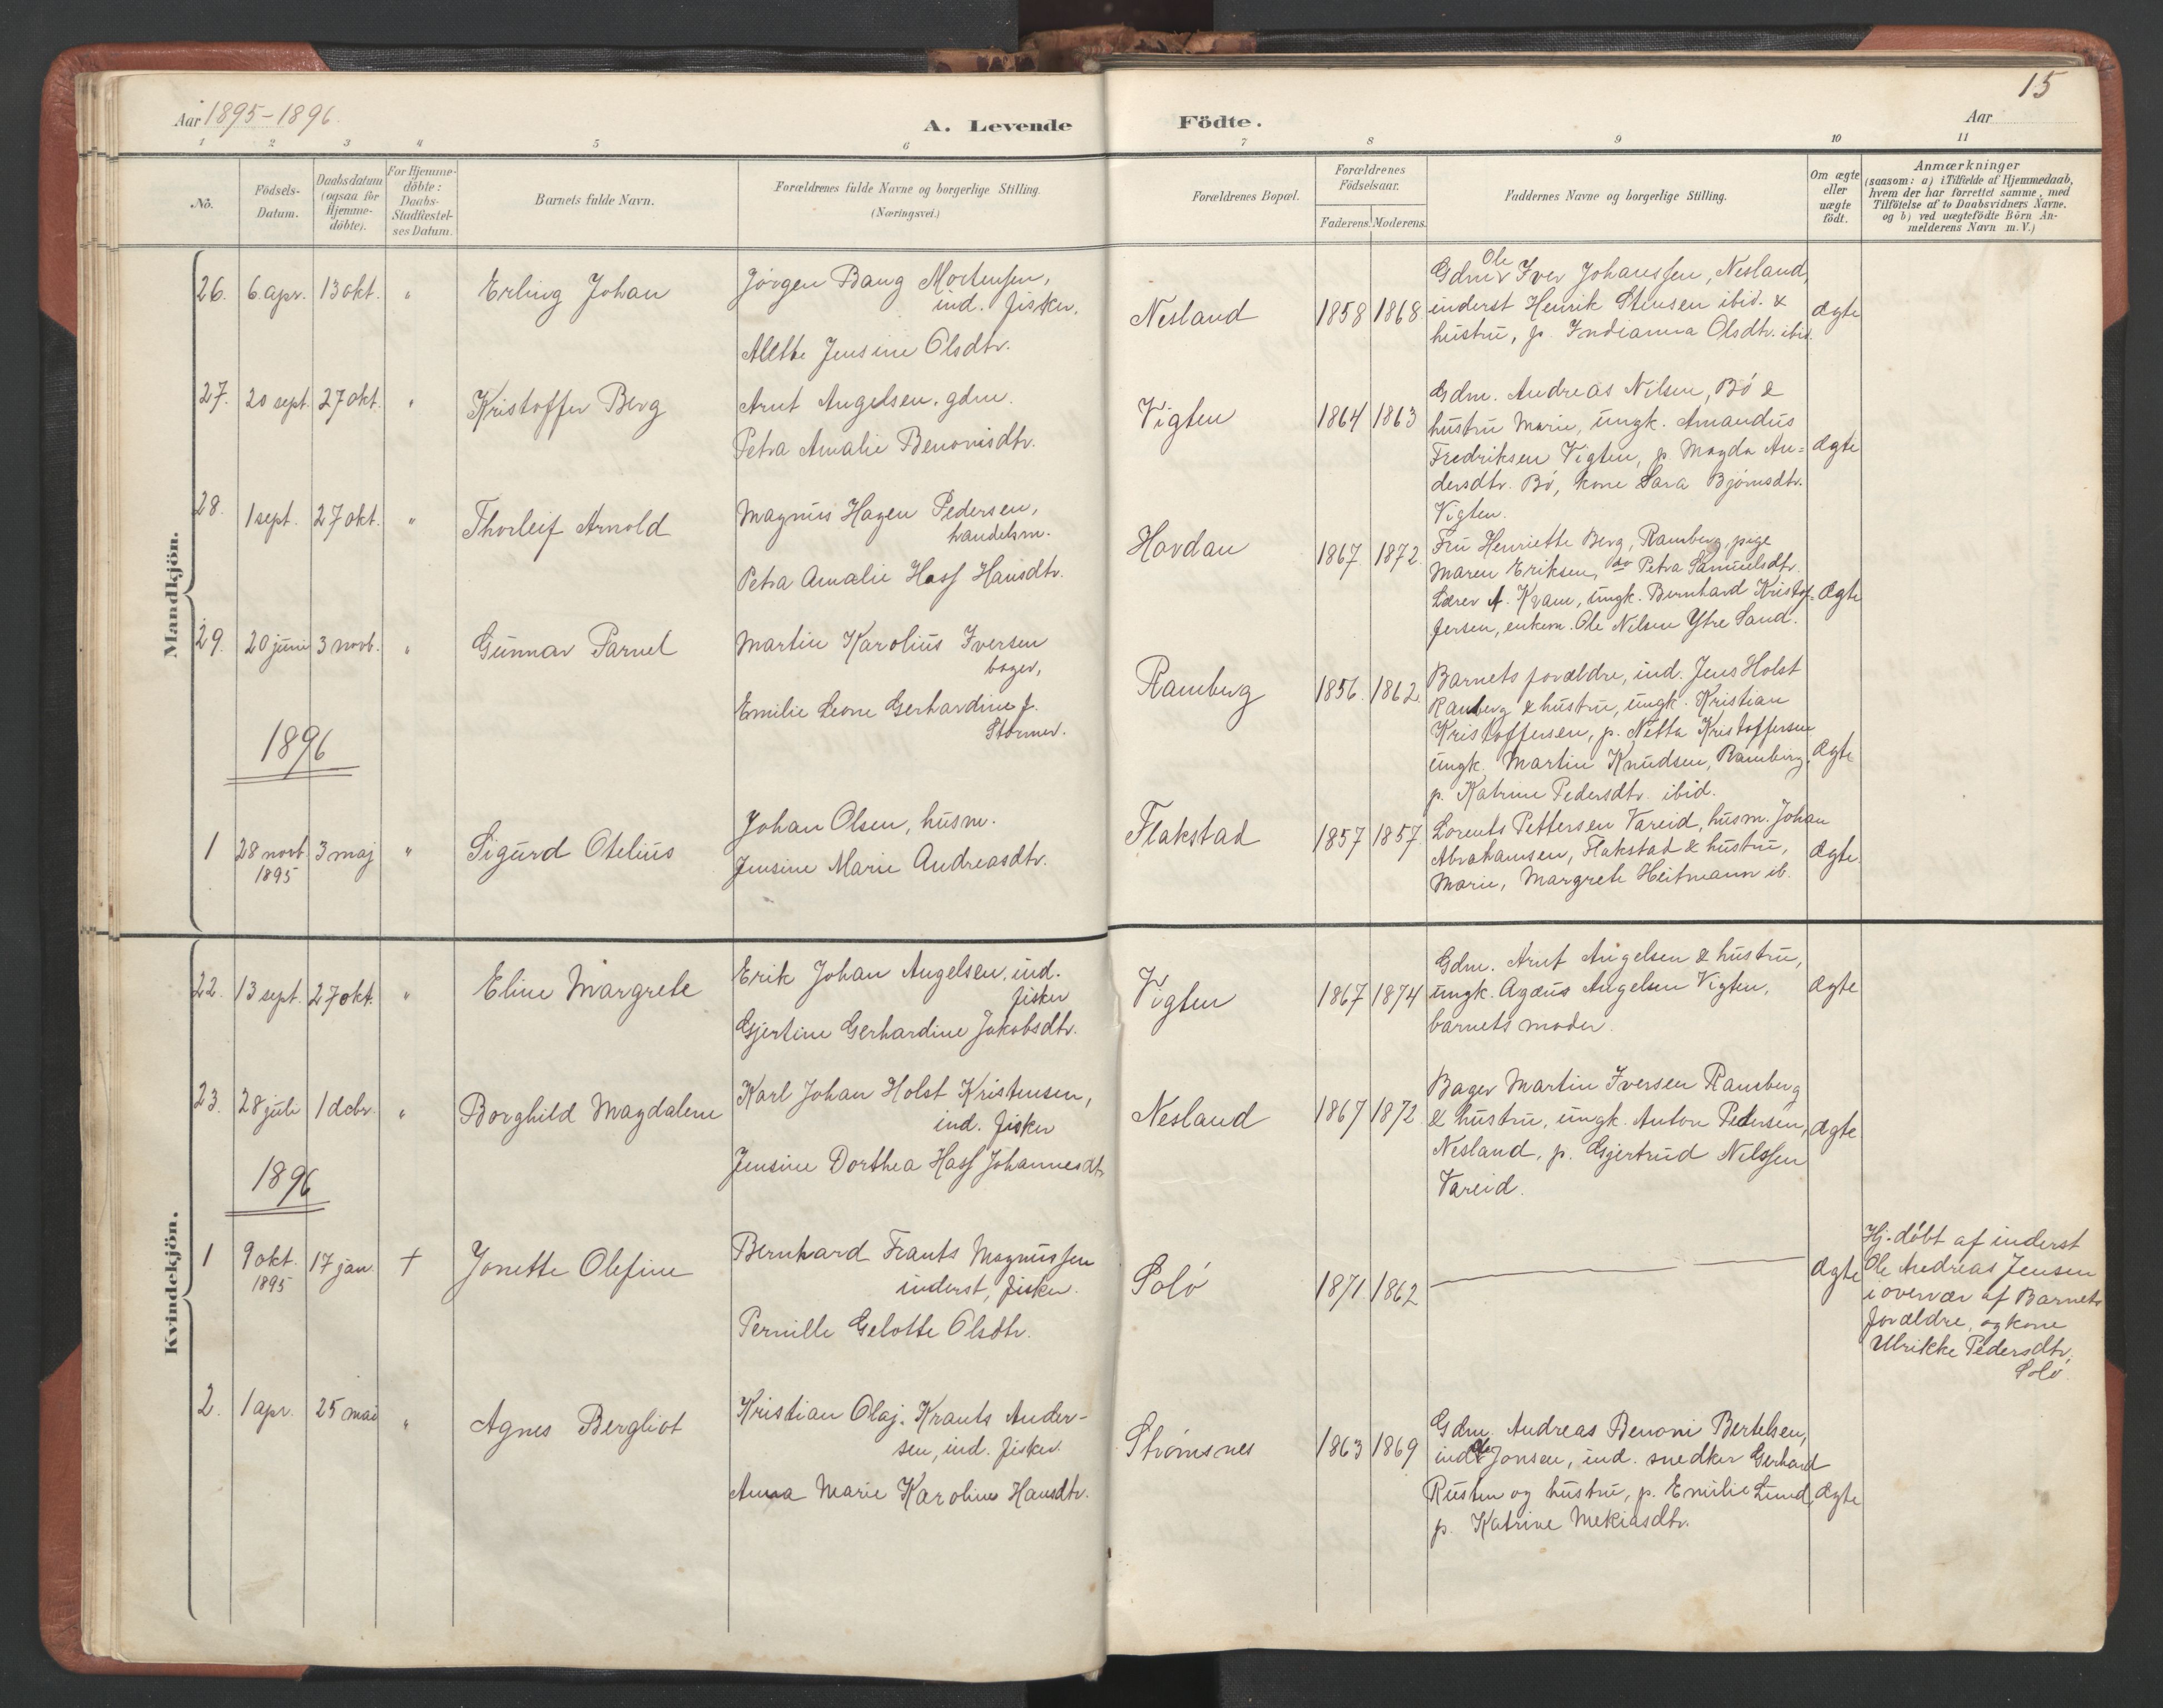 15
Aar 1895-1896.
A. Levende Födte.
Aar
1 2 3 4 5 6 7 8 9 10 11
No.
Födsels-Datum.
Daabsdatum (ogsaa for Hjemme-döbte).
For Hjemme-döbte: Daabs-Stadfæstel-ses Datum.
Barnets fulde Navn.
Forældrenes fulde Navne og borgerlige Stilling.
(Næringsvei.)
Forældrenes Bopæl.
Forældrenes Födselsaar.
Faderens. Moderens.
Faddernes Navne og borgerlige Stilling.
Om ægte eller uægte födt.
Anmærkninger
(saasom: a) i Tilfælde af Hjemmedaab,
hvem der har forrettet samme, med
Tilföielse af to Daabsvidners Navne.
og b) ved uægtefödte Börn An-
melderens Navn m. V.)
Mandkjön.
26. 6 apr. 13 okt. " Erling Johan
Jörgen Bang Mortensen,
ind. fisker.
Alette Jensine Olsdtr.
Nesland 1858 1868
Ole
Gdmr Iver Johanssen, Nesland,
inderst Henrik Stensen ibid. &
hustru, p. Indianna Olsdtr. ibid.
ægte
27. 20 sept. 27 okt. " Kristoffer Berg
Arnt Angelsen, gdm.
Petra Amalie Benonisdtr.
Vigten 1864 1863
Gdm. Andreas Nilsen, Bö &
hustru Marie, ungk. Amandus
Fredriksen Vigten, p. Magda An=
dersdtr. Bö, kone Sara Bjørnsdtr.
Vigten.
ægte
28. 1 sept. 27 okt. " Thorleif Arnold
Magnus Hagen Pedersen,
handelsm.
Petra Amalie Hass Hansdtr.
Havdan 1867 1872.
Fru Henriette Berg, Ramberg, pige
Maren Eriksen, do Petra Samuelsdtr.
Lærer A. Kvam, ungk. Bernhard Kristof=
fersen, enkem. Ole Nilsen Ytre Sand.
ægte
29. 20 juni 3 novb. " Gunnar Parnel
Martin Karolius Iversen
bager,
Emilie Leone Gerhardine f.
Stormer.
Ramberg 1856. 1862.
Barnets forældre, ind. Jens Holst
Ramberg & hustru, ungk. Kristian
Kristoffersen, p. Netta Kristoffersen
ungk. Martin Knudsen, Ramberg,
p. Katrine Pedersdtr. ibid.
ægte
1896
1 28 novb. 1895 3 maj " Sigurd Otelius
Johan Olsen, husm.
Jensine Marie Andreasdtr.
Flakstad 1857 1857.
Lorents Pettersen Vareid, husm. Johan
Abrahamsen, Flakstad & hustru,
Marie, Margrete Heitmann ib.
ægte.
Kvindekjön.
22. 13 sept. 27 okt. " Eline Margrete
Erik Johan Angelsen, ind.
fisker
Gjertine Gerhardine Jakobsdtr.
Vigten 1867 1874
Gdm. Arnt Angelsen & hustru,
ungk. Agæus Angelsen Vigten,
barnets moder.
ægte
23. 28 juli 1 decbr. " Borghild Magdalene
Karl Johan Holst Kristensen,
ind. fisker
Jensine Dorthea Hass Johannesdtr.
Nesland 1867 1872
Bager Martin Iversen Ramberg
& hustru, ungk. Anton Pedersen,
Nesland, p. Gjertrud Nilssen
Vareid.
ægte.
1896
1 9 okt. 1895 17 jan. + Jonette Olefine
Bernhard Frants Magnussen
inderst, fisker.
Pernille Gelotte Olsdtr.
Solö 1871. 1862
ægte
Hj.-döbt af inderst
Ole Andreas Jensen
i overvær af Barnets
forældre, og kone
Ulrikke Pedersdtr,
Solö.
2. 1 apr. 25 mai " Agnes Bergliot
Kristian Olaj. Krants Ander-
sen, ind. fisker.
Anna Marie Karoline Hansdtr.
Strömsnes 1863 1869
Gdm. Andreas Benoni Bertelsen,
ind. Ole Jonsen, ind. snedker Gerhard
Rusten og hustru, p. Emilie Lund,
p. Katrine Mekiasdtr.
ægte